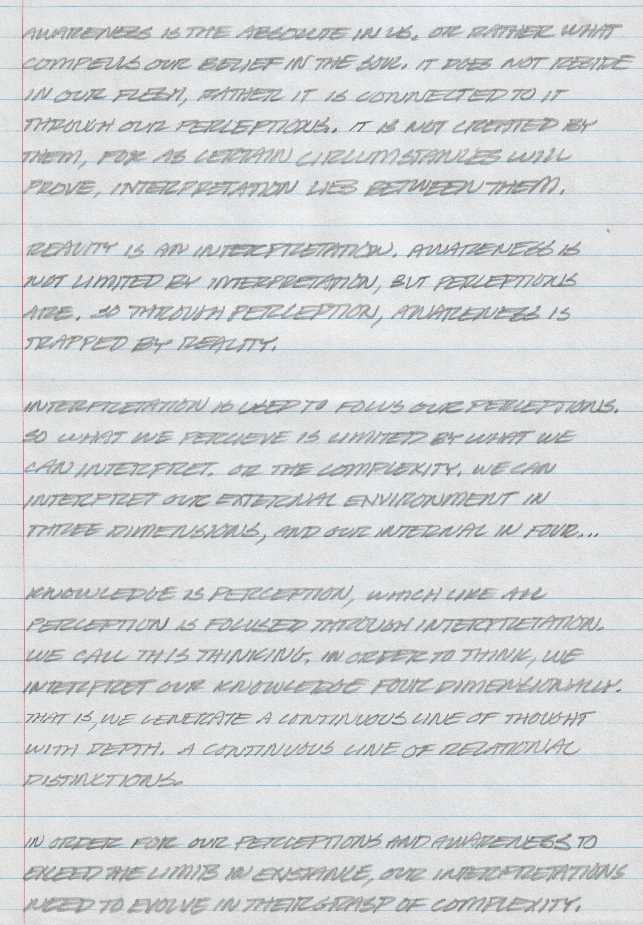 AWARENESS IS THE ABSOLUTE IN US. OR RATHER WHAT
COMPELLS OUR BELIEF IN THE SOUL. IT DOES NOT RESIDE
IN OUR FLESH, RATHER IT IS CONNECTED TO IT
THROUGH OUR PERCEPTIONS. IT IS NOT CREATED BY
THEM, FOR AS CERTAIN CIRCUMSTANCES WILL
PROVE, INTERPRETATION LIES BETWEEN THEM.

REALITY IS AN INTERPRETATION. AWARENESS IS
NOT LIMITED BY INTERPRETATION, BUT PERCEPTIONS
ARE. SO THROUGH PERCEPTION, AWARENESS IS
TRAPPED BY REALITY.

INTERPRETATION IS USED TO FOCUS OUR PERCEPTIONS.
SO WHAT WE PERCIEVE IS LIMITED BY WHAT WE
CAN INTERPRET. OR THE COMPLEXITY. WE CAN
INTERPRET OUR EXTERNAL ENVIRONMENT IN
THREE DIMENSIONS, AND OUR INTERNAL IN FOUR...

KNOWLEDGE IS PERCEPTION, WHICH LIKE ALL
PERCEPTION IS FOCUSED THROUGH INTERPRETATION.
WE CALL THIS THINKING. IN ORDER TO THINK, WE
INTERPRET OUR KNOWLEDGE FOUR DIMENSIONALLY.
THAT IS, WE GENERATE A CONTINUOUS LINE OF THOUGHT
WITH DEPTH. A CONTINUOUS LINE OF RELATIONAL
DISTINCTIONS.

IN ORDER FOR OUR PERCEPTIONS AND AWARENESS TO
EXCEED THE LIMITS IN EXISTANCE, OUR INTERPRETATIONS
NEED TO EVOLVE IN THEIR GRASP OF COMPLEXITY.